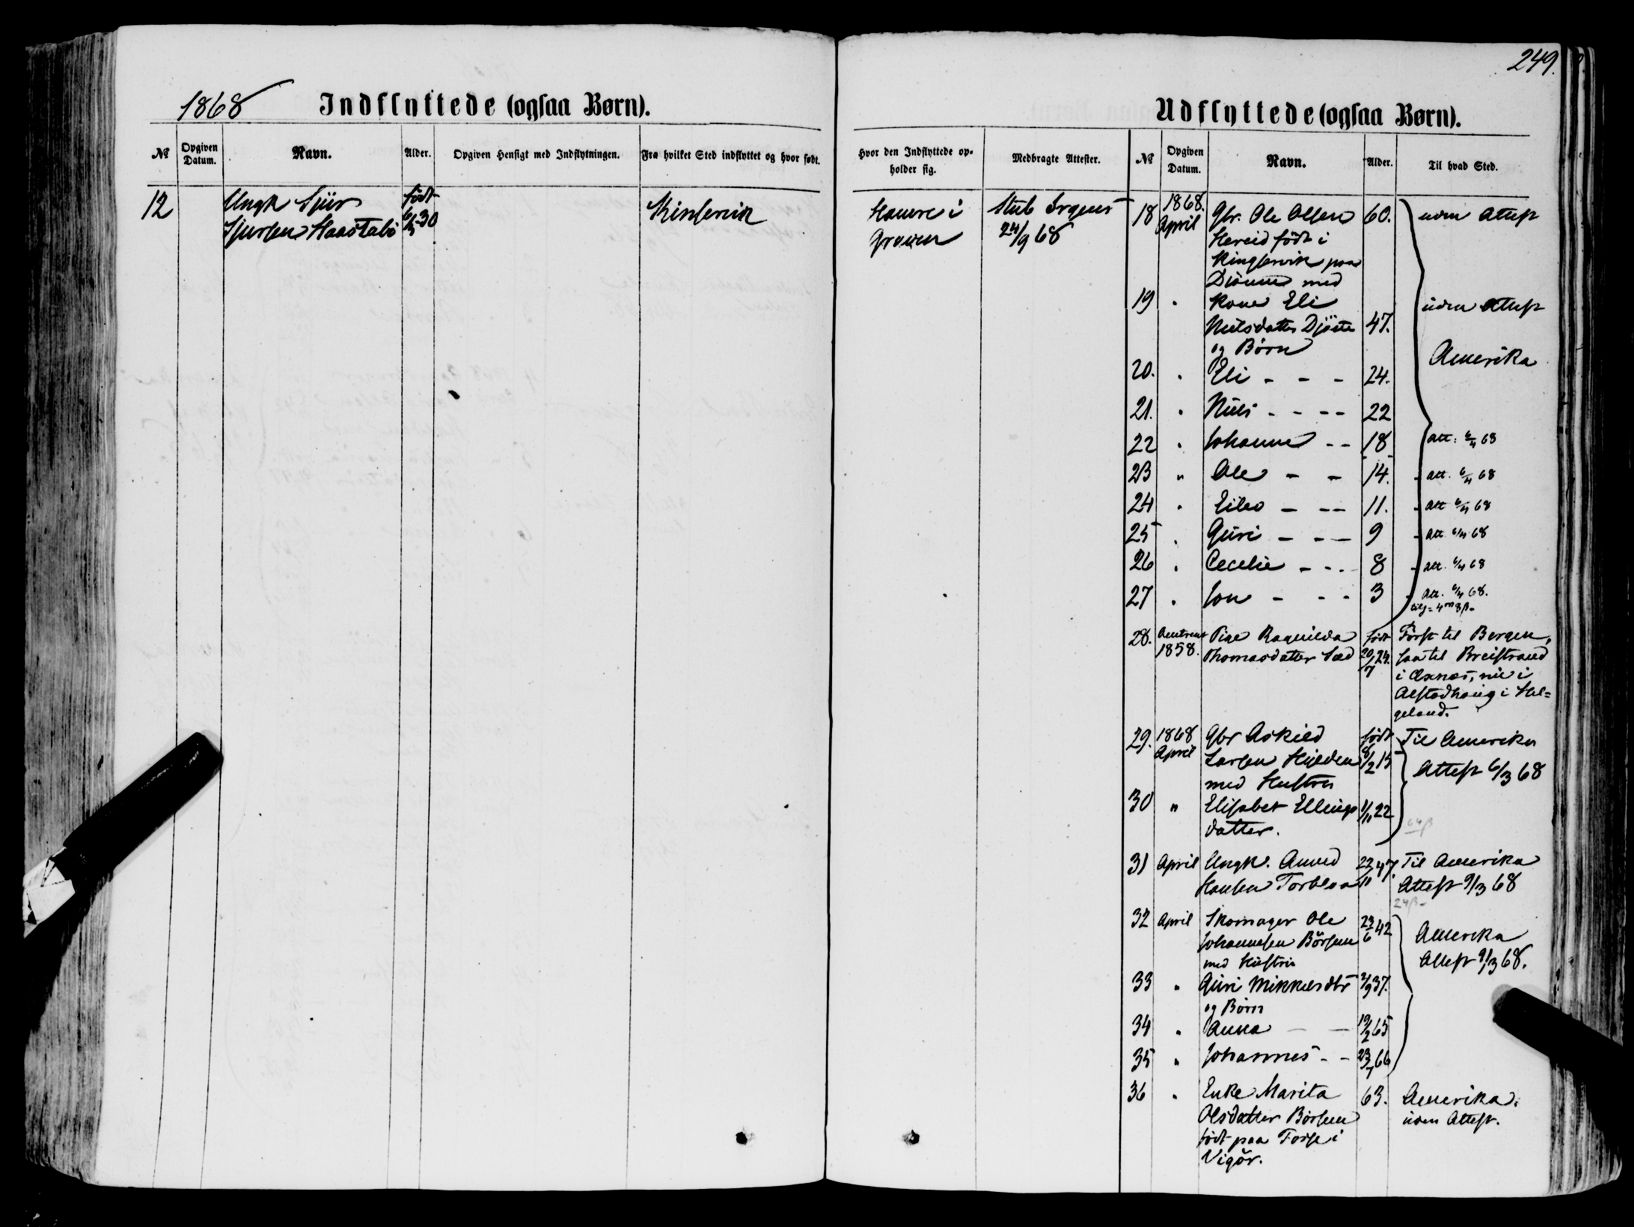 249.
1868 Indflyttede (ogsaa Børn).
Udflyttede (ogsaa Børn).
№ Opgiven Datum. Navn. Alder. Opgiven Hensigt med Indflytningen. Fra hvilket Sted indflyttet og hvor født.
Hvor den Indflyttede opholder sig. Medbragte Attester. № Opgiven Datum. Navn. Alder. Til hvad Sted.
12 Ungk Sjur født Kinservik
24/9 68
18 1868 April Gbr. Ole Olsen 60. uden Attest
Hereid født i
Kingservik paa
Diönne med
19 " Kone Eli uden Attest
Nielsdatter 47.
og Børn Amerika
20. " Eli - - - 24.
21. " Niels - - - - 22
22 " Johanne - - 18 att: 6/4 68
23 " Ole - - 14. att. 6/4 68
24 " - - - 11. att 6/4 68
25 " Guri - - - 9 att. 6/4 68
26 " Cecelie - - - 8 att. 6/4 68
27 " Jon - - - 3 att. 6/4 68.
28. 1858. Pige Ragnilda født Først til Bergen,
Thomasdatter 20/7 24. saa til Breistrand
i nu i
Alstadhaug i Hel=
geland.
29. 1868 April Gbr Askild født Til Amerika
Larsen 8/2 15 Attest 6/3 68
med Hustru
30 " Elisabet Ellings 1/11 22
datter.
31 April Ungk. Amund 22/11 47. Til Amerika
Hansen Torbloa Attest 9/3 68
32 April Skomager Ole 22/6 42 Amerika
Johannesen Börsem Attest 9/3 68.
med Hustru
33 " Guri Mikkelsdtr 2/9 37.
og Børn
34 " Anna - - 19/2 65
35 " Johannes - - 23/7 66
36 " Enke Marita 63. Amerika.
Olsdatter Börsem uden Attest.
født paa Torpe i
Vigör.